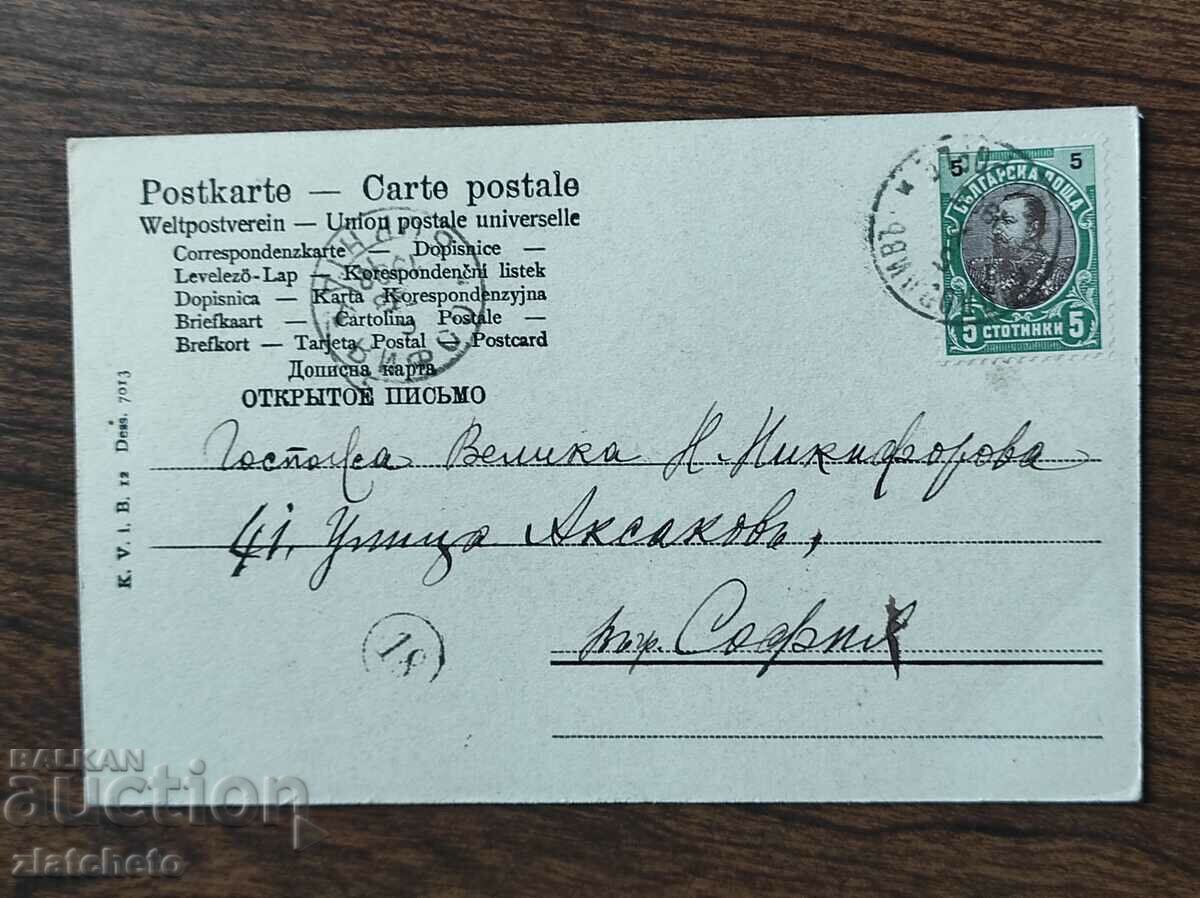 Postkarte — Carte postale
Weltpostverein — Union postale universelle
Correspondenzkarte — Dopisnice —
Levelező-Lap — Korespondenční listek
Dopisnica — Karta Korespondenzyjna
Briefkaart — Cartolina Postale —
Brefkort — Tarjeta Postal — Postcard
Дописна карта
ОТКРЫТОЕ ПИСЬМО
K. V. i. B. 12 Dess. 7013
5 5
БЪЛГАРСКА ПОЩА
5 СТОТИНКИ 5
Госпожа Велика Н. Никифорова
41, Улица Аксаковъ,
гр. София
18
BALKAN
auction
zlatcheto